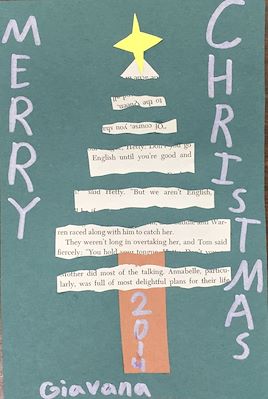 MERRY
CHRISTMAS
to the Queen
Of course, you
Hetty. Don't you go
English until you're good and
said Hetty. "But we aren't English,
and War-
ren raced along with him to catch her.
They weren't long in overtaking her, and Tom said
fiercely: "You hold your tongue, Hetty. Don't you
other did most of the talking. Annabelle, particu-
larly, was full of most delightful plans for their life
2014
Giavana